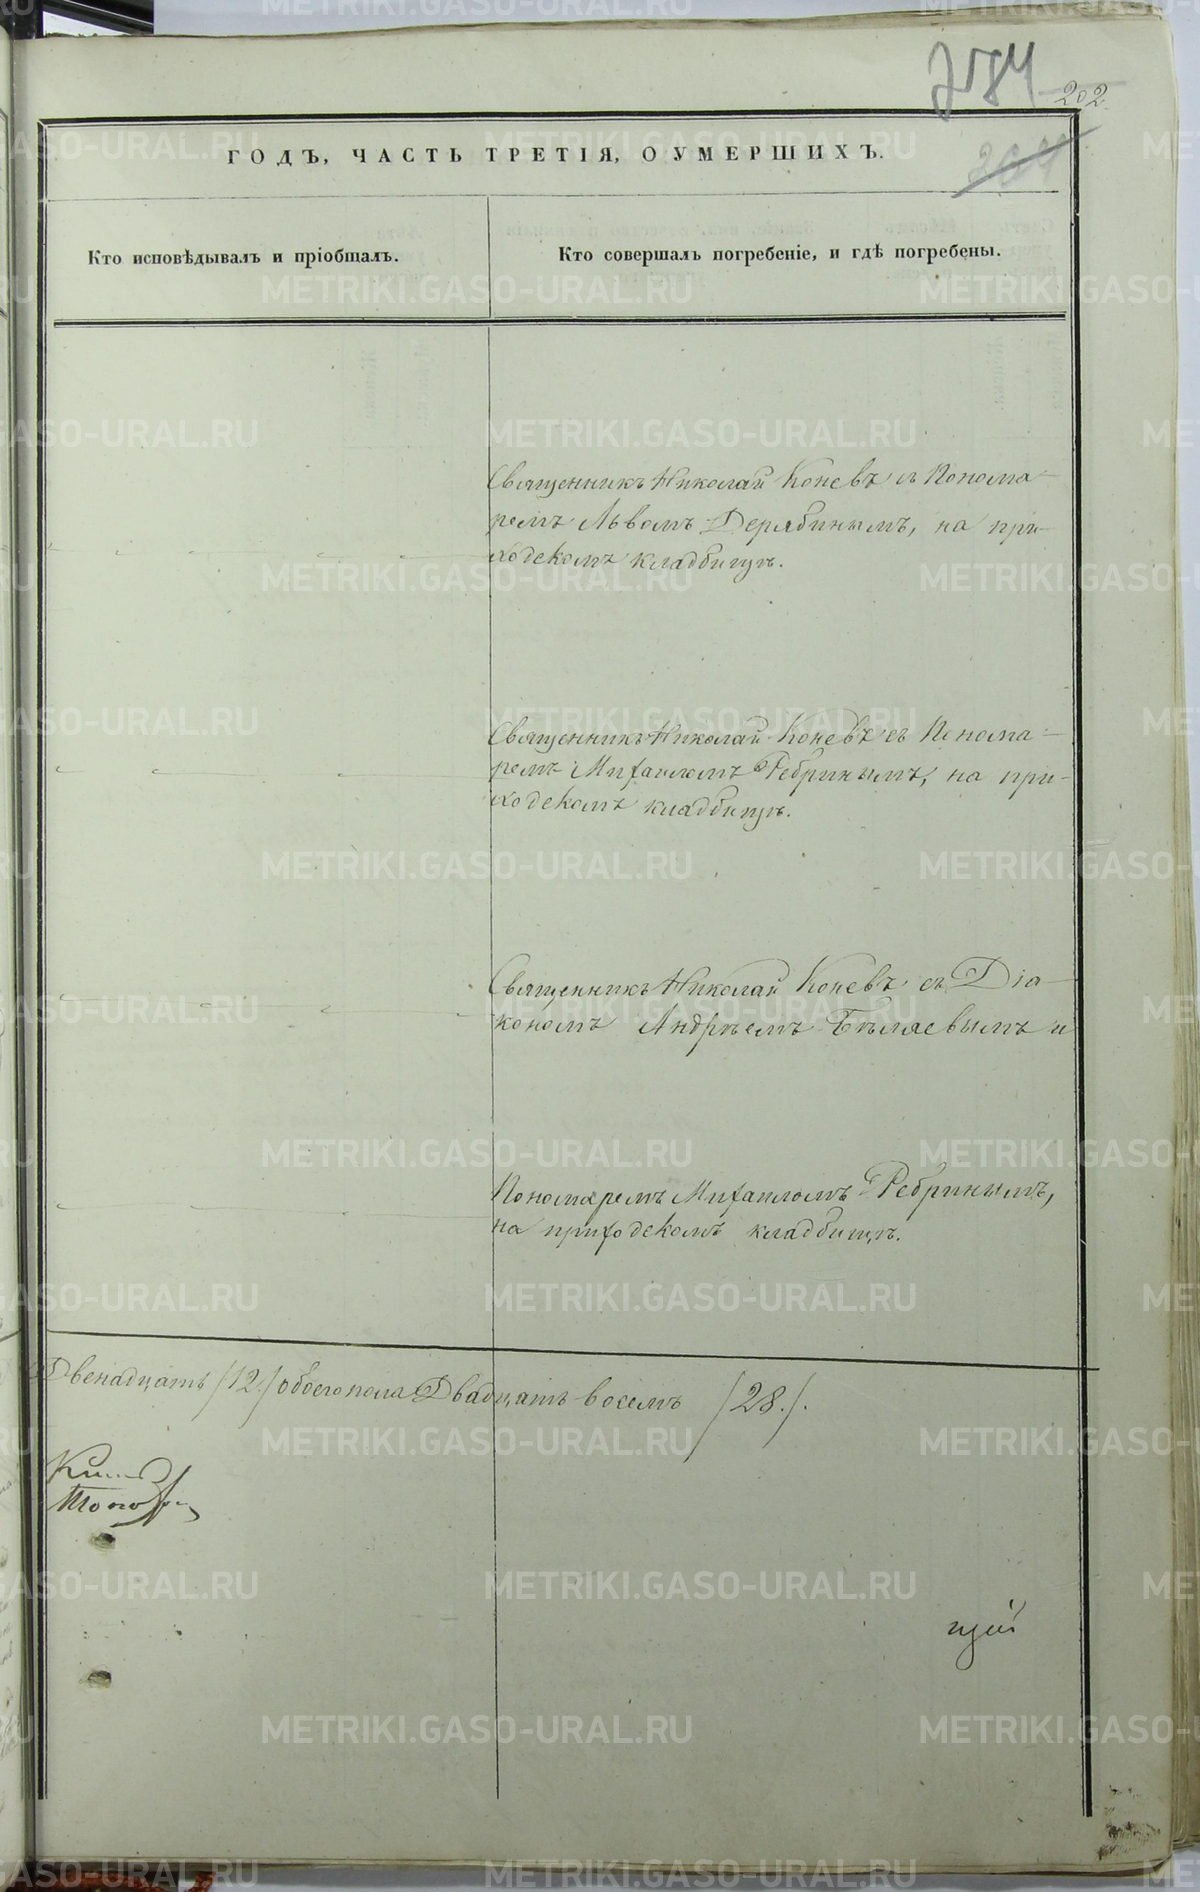 784
202
204
ГОДЪ, ЧАСТЬ ТРЕТІЯ, О УМЕРШИХЪ.
Кто исповѣдывалъ и пріобщалъ.
Кто совершалъ погребеніе, и гдѣ погребены.
Священникъ Николай Коневъ съ Понома-
ремъ Львомъ Дерябинымъ, на при-
ходскомъ кладбищѣ.
Священникъ Николай Коневъ съ Понома-
ремъ Михаиломъ Ребринымъ, на при-
ходскомъ кладбищѣ.
Священникъ Николай Коневъ съ Діа-
кономъ Андрѣемъ Бѣляевымъ и
Пономаремъ Михаиломъ Ребринымъ,
на приходскомъ кладбищѣ.
Двенадцать /12./ обоего пола Двадцать восемь /28./.
щій
METRIKI.GASO-URAL.RU